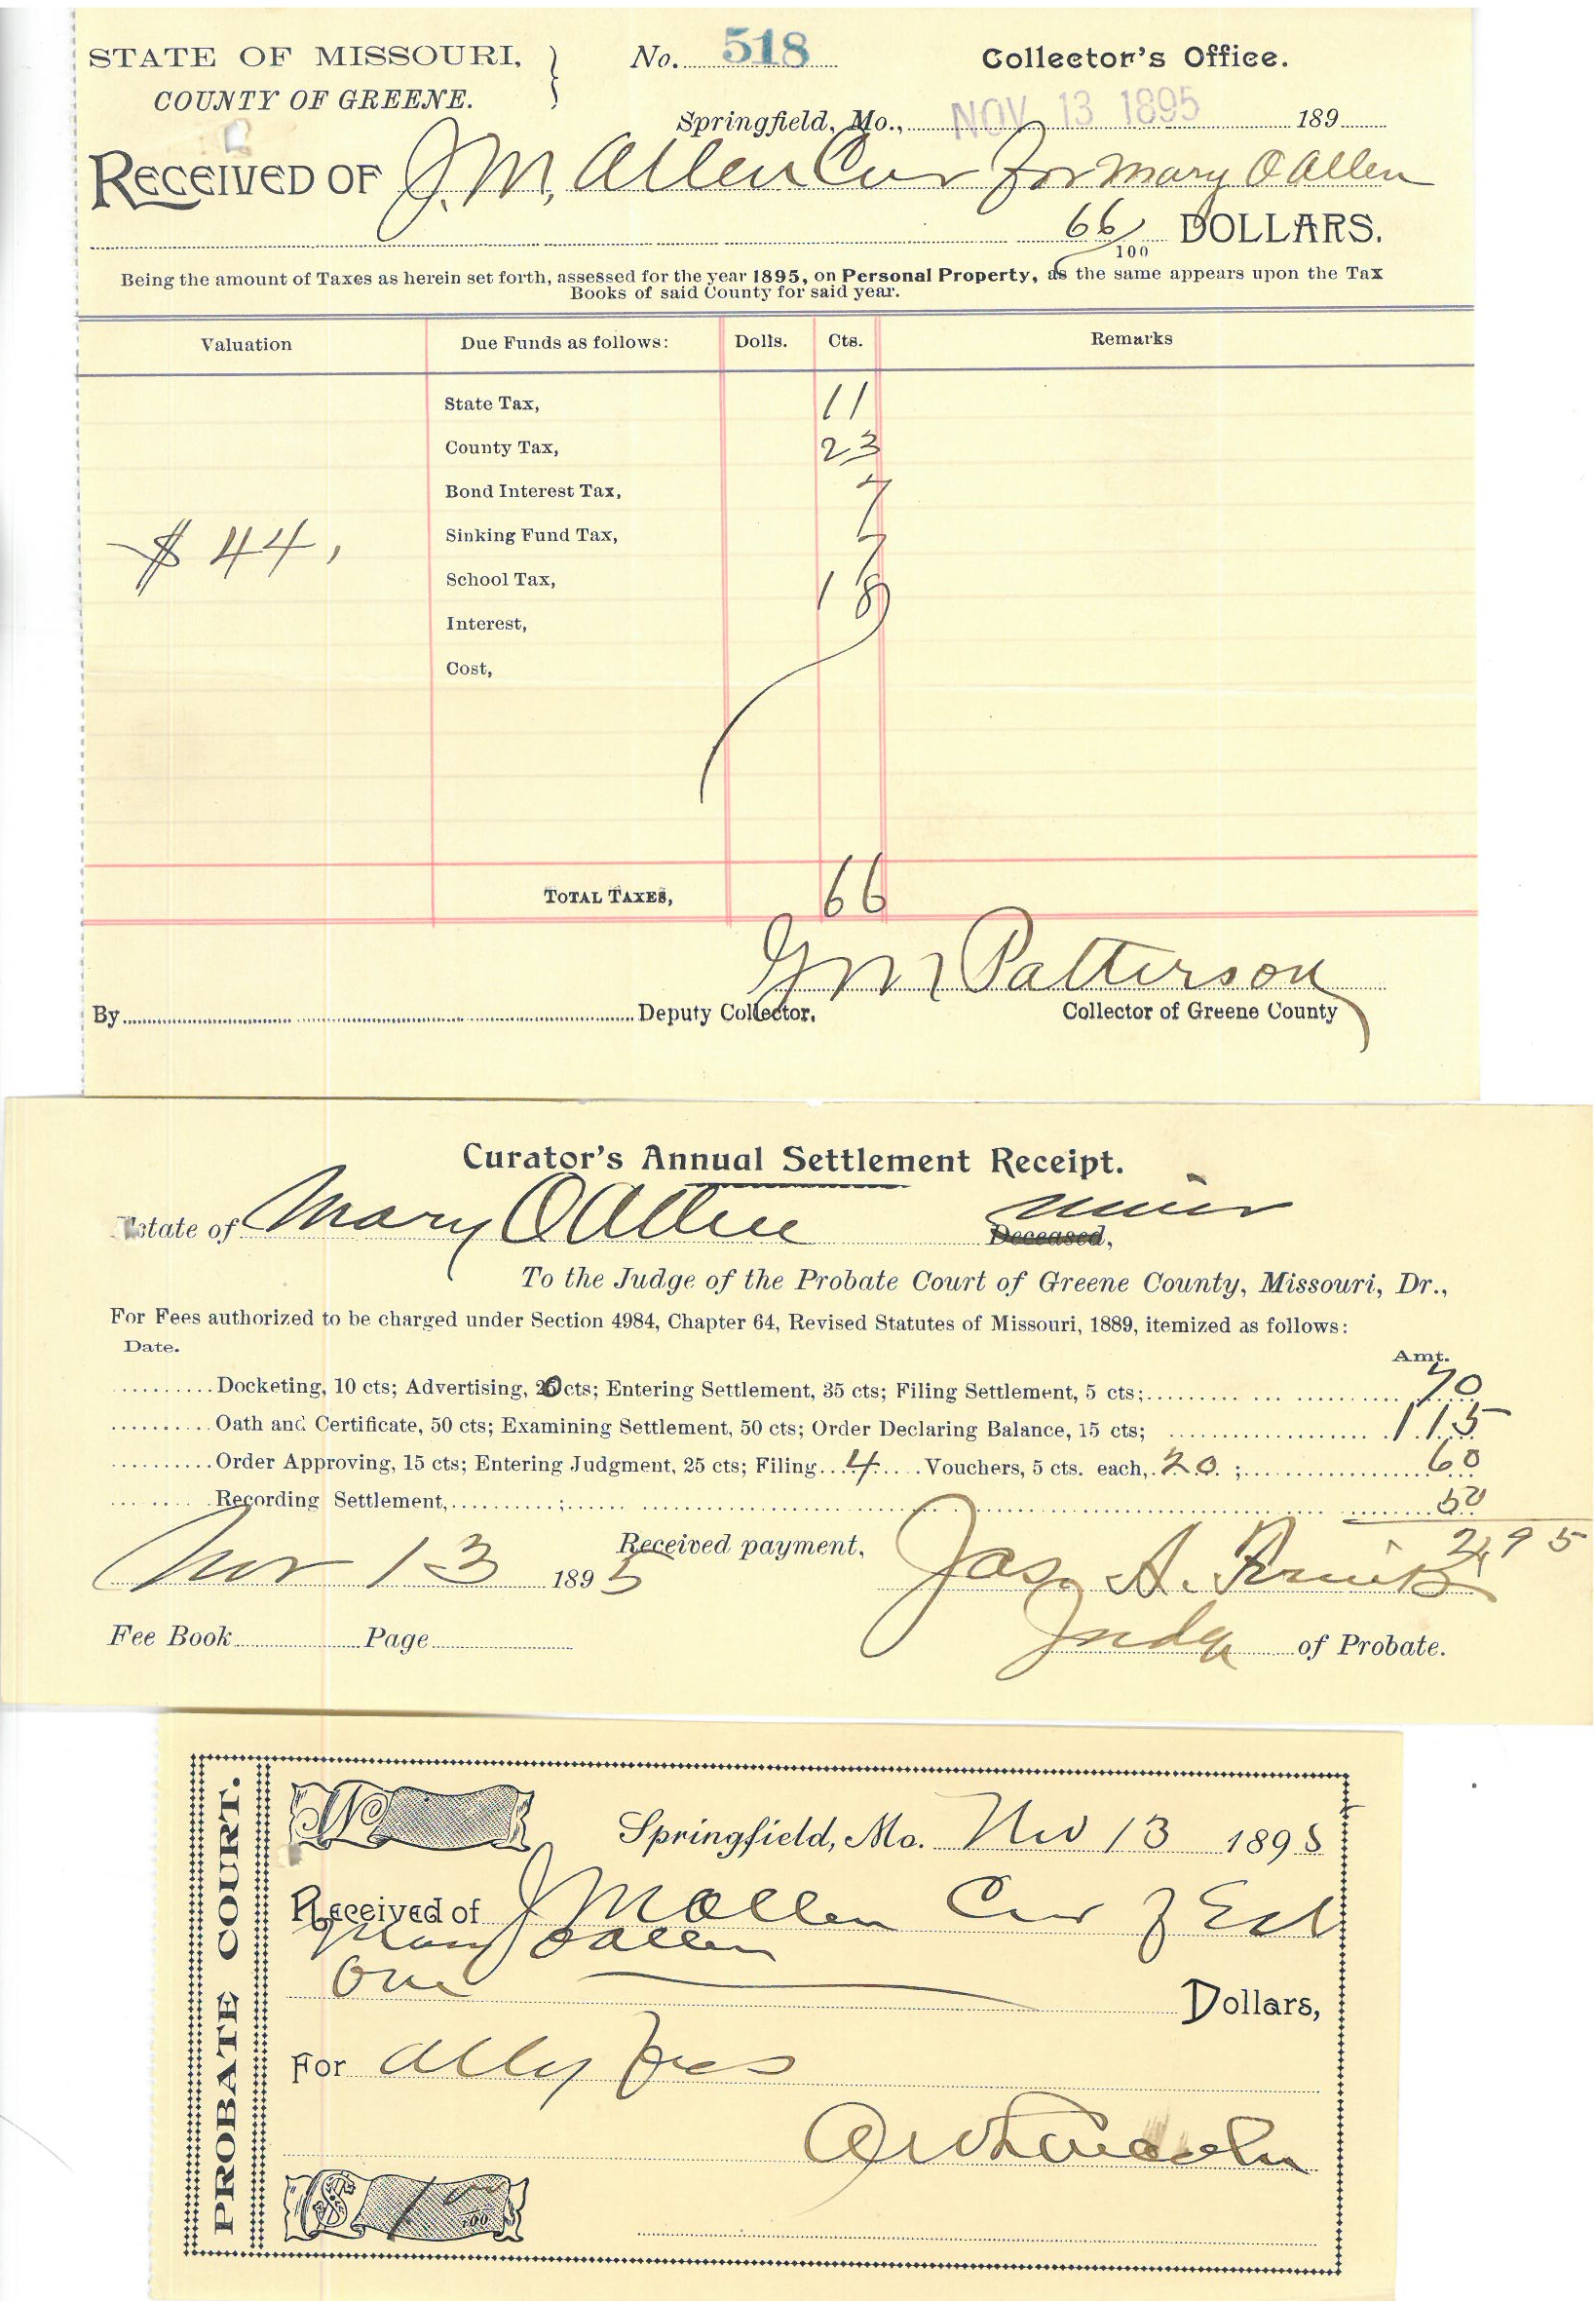 STATE OF MISSOURI, } No. 518 Collector's Office.
COUNTY OF GREENE.
Springfield, Mo., NOV 13 1895 189
RECEIVED OF J. M. Allen Cur for Mary O Allen
66/100 DOLLARS.
Being the amount of Taxes as herein set forth, assessed for the year 1895, on Personal Property, as the same appears upon the Tax
Books of said County for said year.
Valuation Due Funds as follows: Dolls. Cts. Remarks
State Tax, 11
County Tax, 23
Bond Interest Tax, 7
$ 44, Sinking Fund Tax, 7
School Tax, 18
Interest,
Cost,
TOTAL TAXES, 66
G M Patterson
By Deputy Collector. Collector of Greene County
Curator's Annual Settlement Receipt.
Estate of Mary O Allen minor Deceased,
To the Judge of the Probate Court of Greene County, Missouri, Dr.,
For Fees authorized to be charged under Section 4984, Chapter 64, Revised Statutes of Missouri, 1889, itemized as follows:
Date. Amt.
Docketing, 10 cts; Advertising, 20 cts; Entering Settlement, 35 cts; Filing Settlement, 5 cts; 70
Oath and Certificate, 50 cts; Examining Settlement, 50 cts; Order Declaring Balance, 15 cts; 1.15
Order Approving, 15 cts; Entering Judgment, 25 cts; Filing 4 Vouchers, 5 cts. each, 20 ; 60
Recording Settlement, ; 50
2,95
Nov 13 1895 Received payment, Jas. A.
Fee Book Page Judge of Probate.
PROBATE COURT.
No
Springfield, Mo. Nov 13 1895
Received of J M Allen Cur of Est
Mary O Allen
One Dollars,
For Atty fees
A W Lincoln
$ 1 00/100